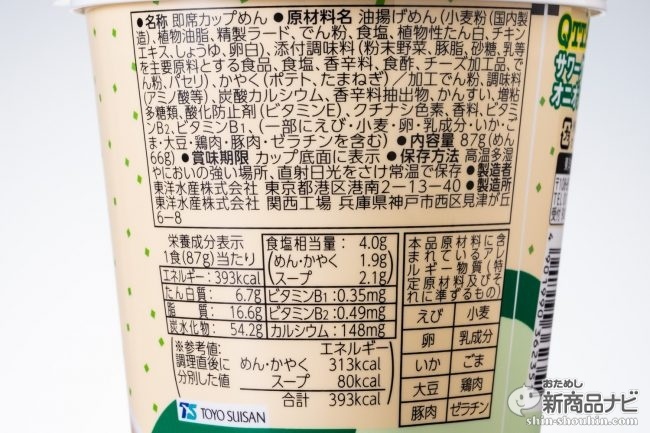 ●名称 即席カップめん ●原材料名 油揚げめん(小麦粉(国内製
造)、植物油脂、精製ラード、でん粉、食塩、植物性たん白、チキン
エキス、しょうゆ、卵白)、添付調味料(粉末野菜、豚脂、砂糖、乳等
を主要原料とする食品、食塩、香辛料、食酢、チーズ加工品、で
ん粉、パセリ)、かやく(ポテト、たまねぎ)/加工でん粉、調味料
(アミノ酸等)、炭酸カルシウム、香辛料抽出物、かんすい、増粘
多糖類、酸化防止剤(ビタミンE)、クチナシ色素、香料、ビタミ
ンB2、ビタミンB1、(一部にえび・小麦・卵・乳成分・いか・ご
ま・大豆・鶏肉・豚肉・ゼラチンを含む) ●内容量 87g(めん
66g) ●賞味期限 カップ底面に表示 ●保存方法 高温多湿
やにおいの強い場所、直射日光をさけ常温で保存 ●製造者
東洋水産株式会社 東京都港区港南2-13-40 ●製造所
東洋水産株式会社 関西工場 兵庫県神戸市西区見津が丘
6-8
栄養成分表示
1食(87g)当たり
エネルギー: 393kcal
たん白質: 6.7g
脂質: 16.6g
炭水化物: 54.2g
食塩相当量: 4.0g
(めん・かやく 1.9g)
スープ 2.1g
ビタミンB1: 0.35mg
ビタミンB2: 0.49mg
カルシウム: 148mg
※参考値: エネルギー
調理直後に めん・かやく 313kcal
分別した値 スープ 80kcal
合計 393kcal
本品原材料に含
まれているアレ
ルギー物質(特
定原材料及びそ
れに準ずるもの)
えび 小麦
卵 乳成分
いか ごま
大豆 鶏肉
豚肉 ゼラチン
TS TOYO SUISAN
QTT
サワー
オニオ
おためし
新商品ナビ
shin-shouhin.com